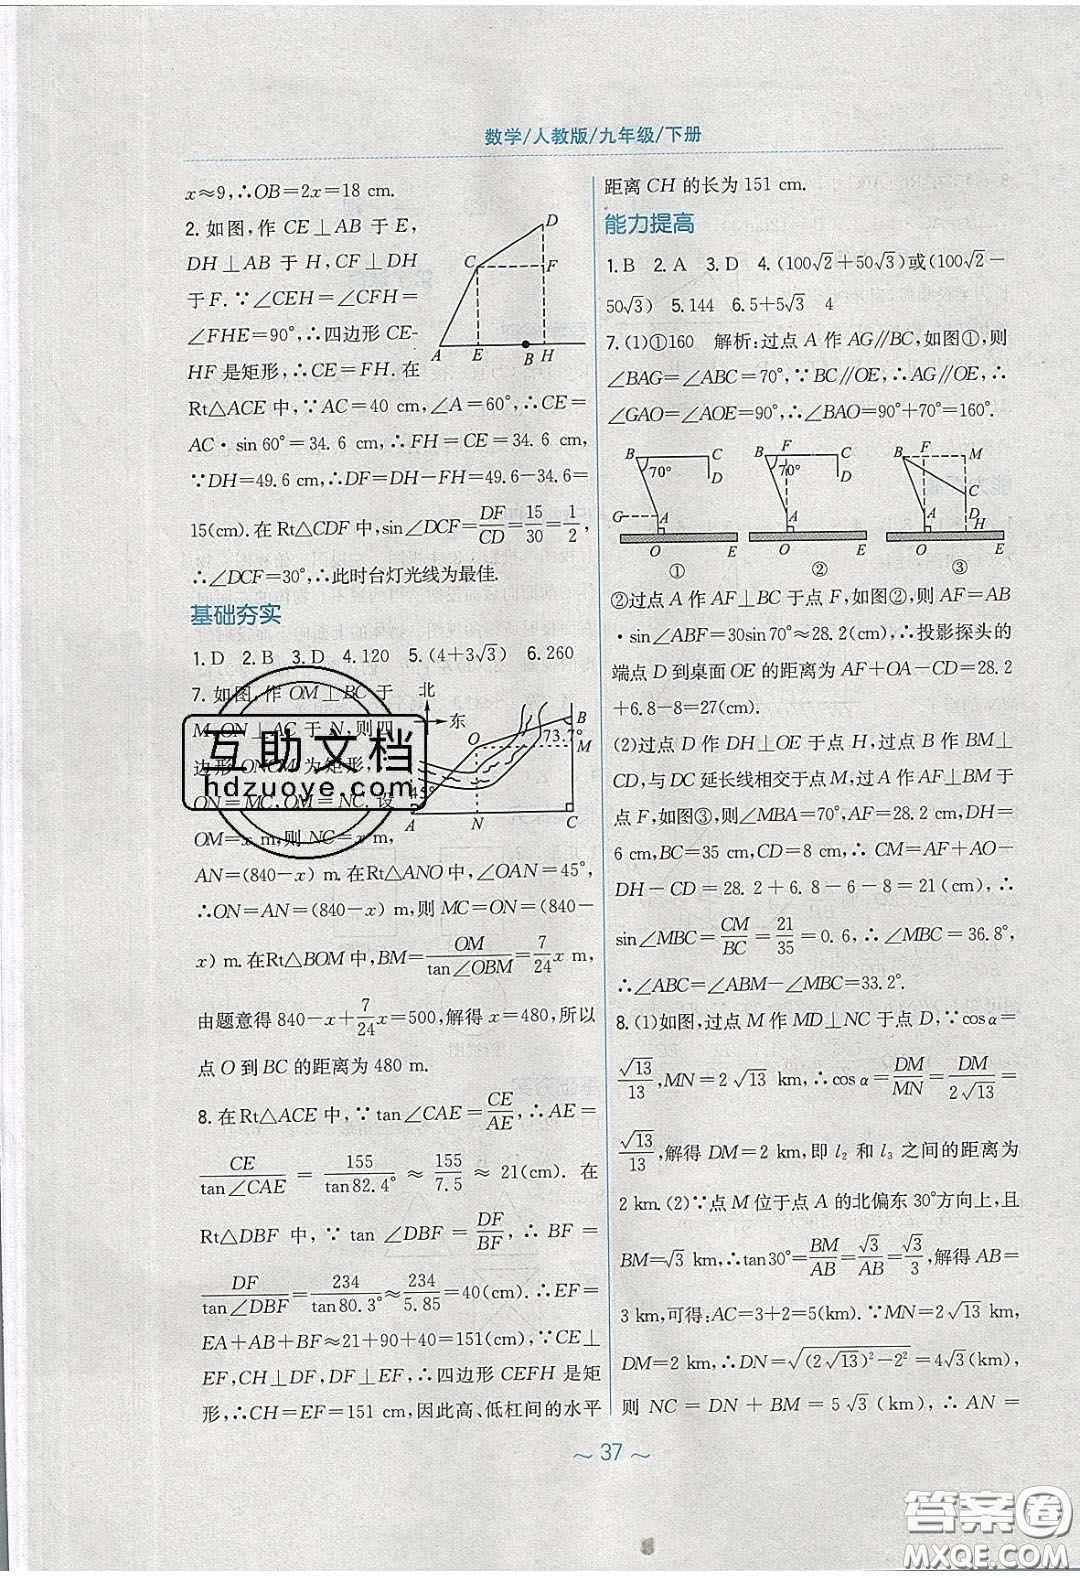 数学/人教版/九年级/下册
x≈9,∴OB=2x=18 cm.
2. 如图,作 CE⊥AB 于 E,
DH⊥AB 于 H,CF⊥DH
于 F.∵∠CEH=∠CFH=
∠FHE=90°,∴四边形 CE-
HF 是矩形,∴CE=FH.在
Rt△ACE 中,∵AC=40 cm,∠A=60°,∴CE=
AC·sin 60°=34.6 cm,∴FH=CE=34.6 cm,
∵DH=49.6 cm,∴DF=DH-FH=49.6-34.6=
15(cm).在 Rt△CDF 中,sin∠DCF=DF/CD=15/30=1/2,
∴∠DCF=30°,∴此时台灯光线为最佳.
D
C
F
A E B H
基础夯实
1. D 2. B 3. D 4. 120 5. (4+3√3) 6. 260
7. 如图,作 OM⊥BC 于
M,ON⊥AC 于 N,则四
边形 ONCM 为矩形,
ON=MC,OM=NC,设
OM=x m,则 NC=x m,
AN=(840-x) m.在Rt△ANO 中,∠OAN=45°,
∴ON=AN=(840-x) m,则 MC=ON=(840-
x) m.在Rt△BOM 中,BM=OM/tan∠OBM=7/24x m,
由题意得 840-x+7/24x=500,解得 x=480,所以
点 O 到 BC 的距离为 480 m.
北
东
B
73.7°
O
M
45°
A N C
8. 在Rt△ACE 中,∵tan∠CAE=CE/AE,∴AE=
CE/tan∠CAE=155/tan82.4°≈155/7.5≈21(cm).在
Rt△DBF 中,∵tan∠DBF=DF/BF,∴BF=
DF/tan∠DBF=234/tan80.3°≈234/5.85=40(cm).∴EF=
EA+AB+BF≈21+90+40=151(cm),∵CE⊥
EF,CH⊥DF,DF⊥EF,∴四边形 CEFH 是矩
形,∴CH=EF=151 cm,因此高、低杠间的水平
距离 CH 的长为 151 cm.
能力提高
1. B 2. A 3. D 4. (100√2+50√3)或(100√2-
50√3) 5. 144 6. 5+5√3 4
7. (1)①160 解析:过点 A 作 AG∥BC,如图①,则
∠BAG=∠ABC=70°,∵BC∥OE,∴AG∥OE,∴
∠GAO=∠AOE=90°,∴∠BAO=90°+70°=160°.
B C
70° D
G A
O E
①
B F C
70° D
A
O E
②
B F M
C
A D
H
O E
③
②过点 A 作 AF⊥BC 于点 F,如图②,则 AF=AB
·sin∠ABF=30sin70°≈28.2(cm),∴投影探头的
端点 D 到桌面 OE 的距离为 AF+OA-CD=28.2
+6.8-8=27(cm).
(2)过点 D 作 DH⊥OE 于点 H,过点 B 作 BM⊥
CD,与 DC 延长线相交于点 M,过点 A 作 AF⊥BM 于
点 F,如图③,则∠MBA=70°,AF=28.2 cm,DH=
6 cm,BC=35 cm,CD=8 cm,∴ CM=AF+AO-
DH-CD=28.2+6.8-6-8=21(cm),∴
sin∠MBC=CM/BC=21/35=0.6,∴∠MBC=36.8°,
∴∠ABC=∠ABM-∠MBC=33.2°.
8. (1)如图,过点 M 作 MD⊥NC 于点 D,∵cosα=
√13/13,MN=2√13 km,∴cosα=DM/MN=DM/2√13=
√13/13,解得 DM=2 km,即 l₂ 和 l₃ 之间的距离为
2 km.(2)∵点 M 位于点 A 的北偏东 30°方向上,且
BM=√3 km,∴tan30°=BM/AB=√3/AB=√3/3,解得 AB=
3 km,可得:AC=3+2=5(km).∵MN=2√13 km,
DM=2 km,∴DN=√((2√13)²-2²)=4√3(km),
则 NC=DN+BM=5√3(km),∴AN=
~ 37 ~
互助文档
hdzuoye.com
答案圈
MXQE.COM